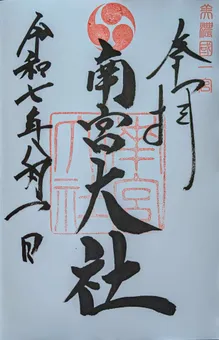 美濃國一宮
奉拝
南宮大社
南宮大社
令和七年 月一日